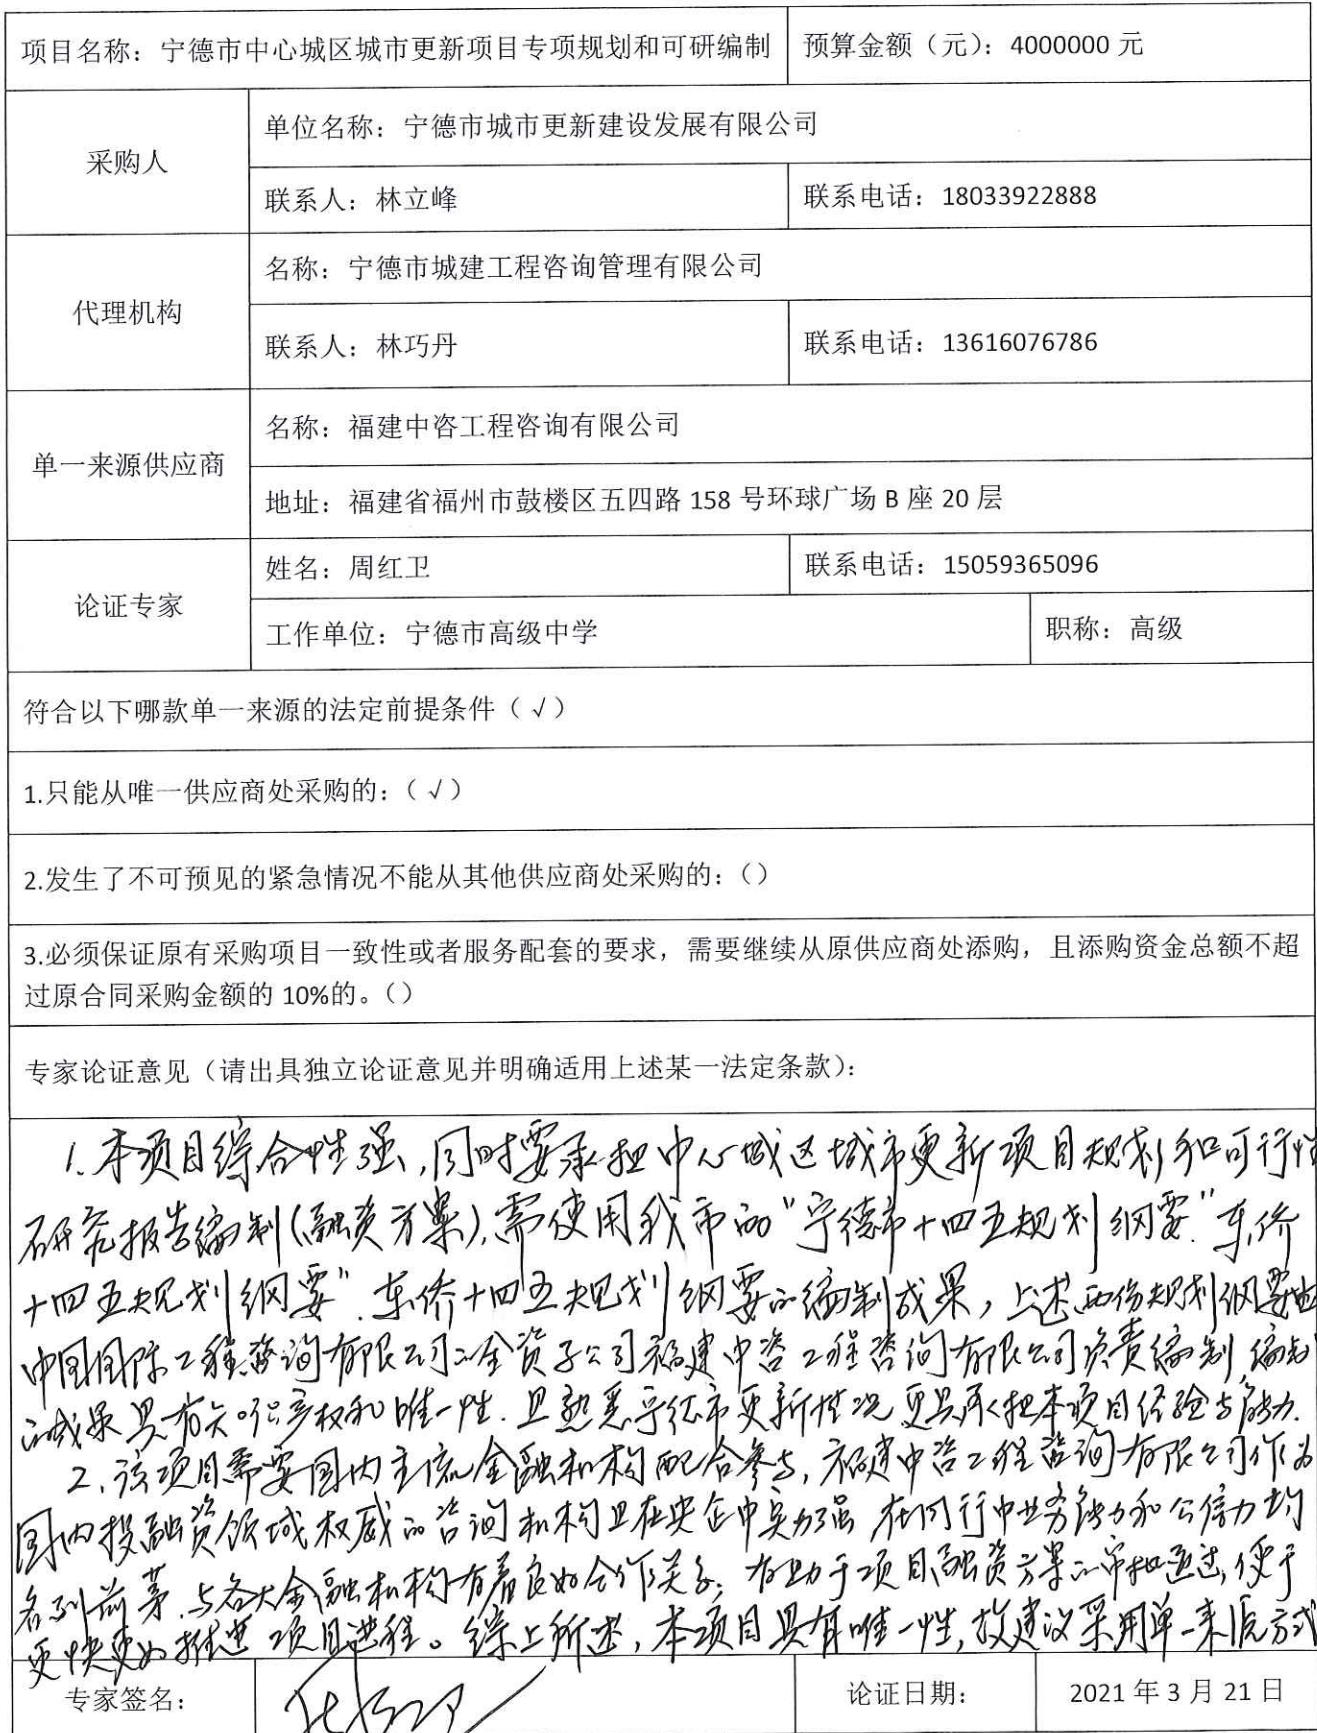 项目名称：宁德市中心城区城市更新项目专项规划和可研编制
预算金额（元）：4000000 元
采购人
单位名称：宁德市城市更新建设发展有限公司
联系人：林立峰
联系电话：18033922888
代理机构
名称：宁德市城建工程咨询管理有限公司
联系人：林巧丹
联系电话：13616076786
单一来源供应商
名称：福建中咨工程咨询有限公司
地址：福建省福州市鼓楼区五四路 158 号环球广场 B 座 20 层
论证专家
姓名：周红卫
联系电话：15059365096
工作单位：宁德市高级中学
职称：高级
符合以下哪款单一来源的法定前提条件（√）
1.只能从唯一供应商处采购的：（√）
2.发生了不可预见的紧急情况不能从其他供应商处采购的：（）
3.必须保证原有采购项目一致性或者服务配套的要求，需要继续从原供应商处添购，且添购资金总额不超
过原合同采购金额的 10%的。（）
专家论证意见（请出具独立论证意见并明确适用上述某一法定条款）：
1.本项目综合性强,同时要承担中心城区城市更新项目规划和可行性
研究报告编制(融资方案),需使用我市的"宁德市十四五规划纲要".东侨
十四五规划纲要".东侨十四五规划纲要的编制成果，上述两份规划纲要由
中国国际工程咨询有限公司的全资子公司福建中咨工程咨询有限公司负责编制,编制
的成果具有知识产权和唯一性.且熟悉宁德市更新情况更具承担本项目经验与能力.
2.该项目需要国内主流金融机构配合参与,福建中咨工程咨询有限公司作为
国内投融资领域权威的咨询机构且在央企中实力强 在同行中业务能力和公信力均
名列前茅.与各大金融机构有着良好合作关系,有助于项目融资方案的审批通过,便于
更快更好推进项目进程。综上所述,本项目具有唯一性,故建议采用单一来源方式
专家签名：
论证日期：
2021 年 3 月 21 日